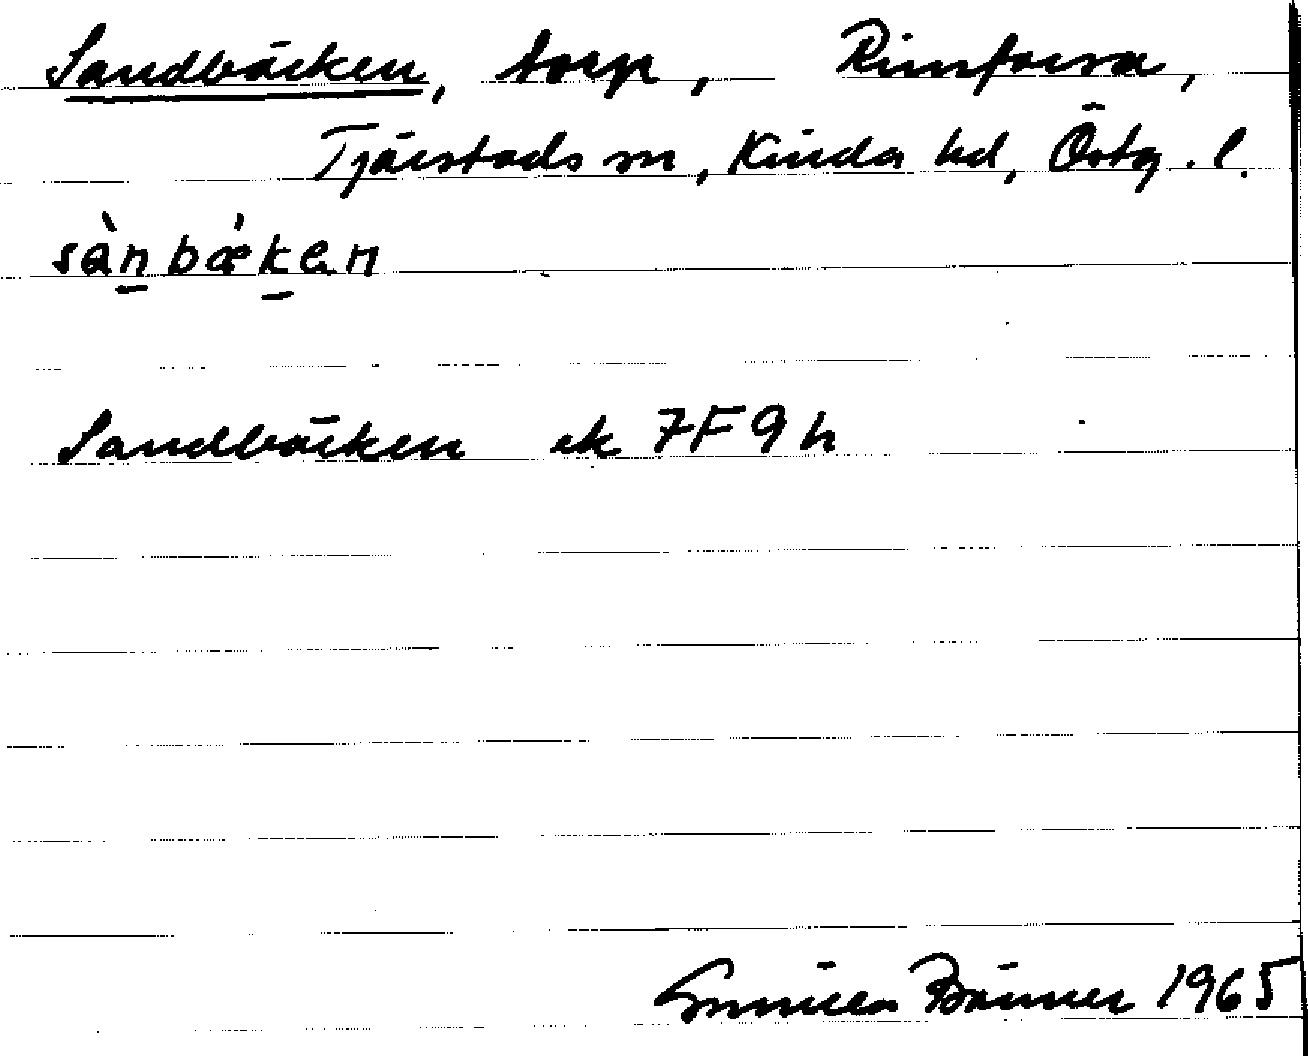 Sandbäcken, torp, Rimforsa,
Tjärstads sn, Kinda hd, Östg. l.
sàn bǽkan
Sandbäcken ek 7F9h
1965